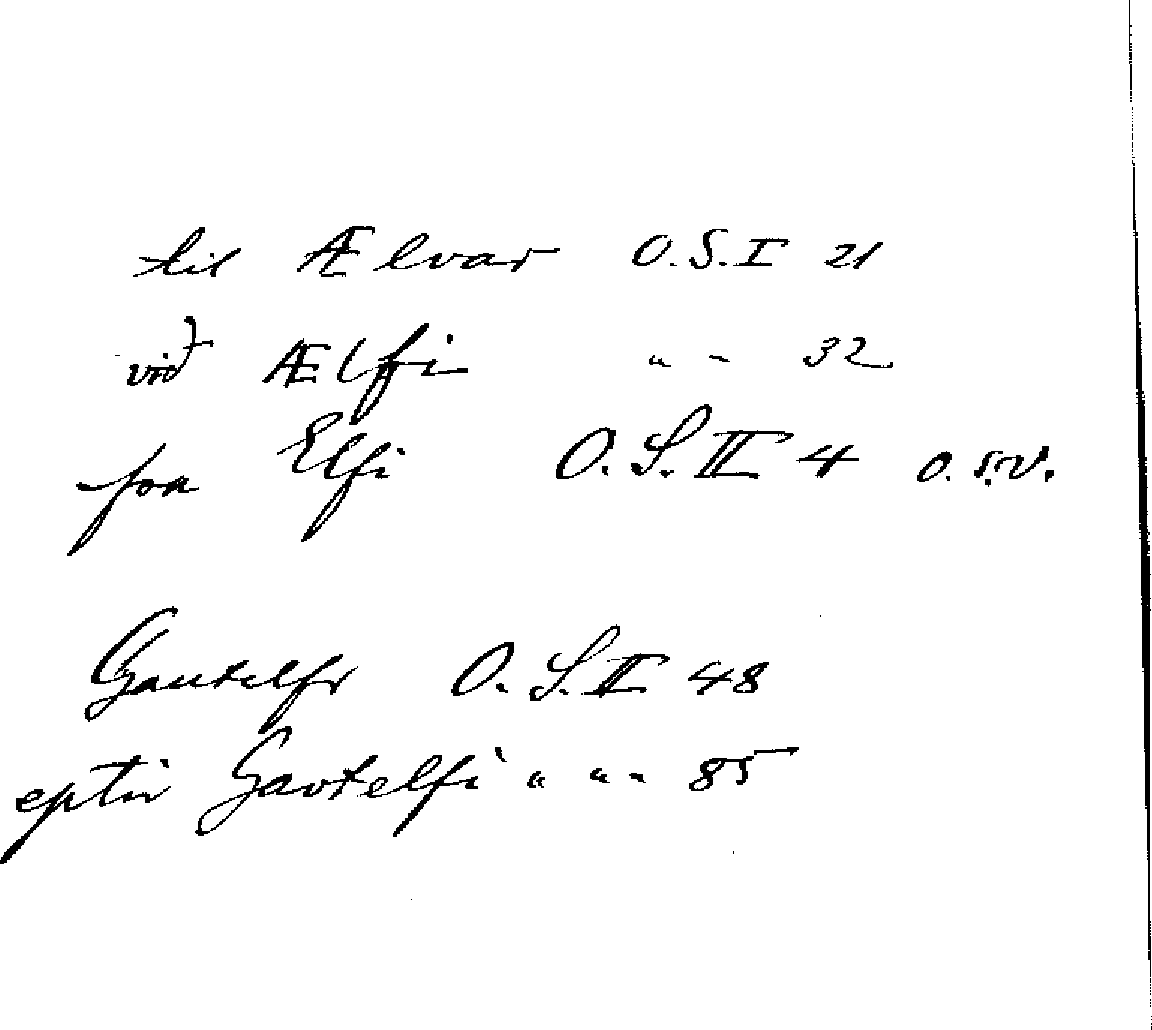 til Ælvar O.S.I 21
við Ælfi " - 32
fra Elfi O.S.II 4 O.S.V.
Gautelfr O.S.II 48
eptir Gavtelfi " " - 85